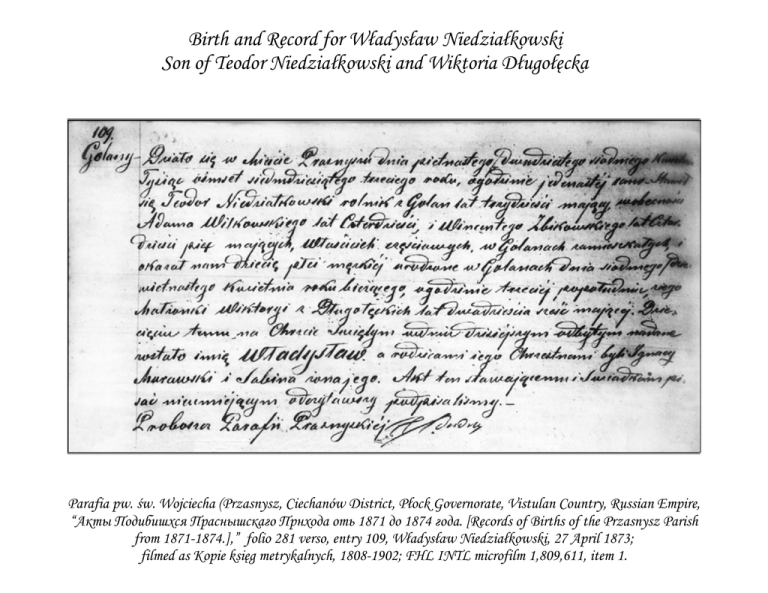 Birth and Record for Władysław Niedziałkowski
Son of Teodor Niedziałkowski and Wiktoria Długołęcka
109.
Golany
Działo się w Mieście Przasnyszu dnia piętnastego/dwudziestego siódmego
Tysiąc ośmset siedmdziesiątego trzeciego roku, o godzinie jedenastej
się Teodor Niedziałkowski rolnik z Golan lat trzydzieści mający, w obecności
Adama Wilkowskiego lat czterdzieści, i Wincentego Zbikowskiego lat
dzieści pięć mających, Właścicieli częściowych, w Golanach zamieszkałych, i
okazał nam dziecię płci męzkiej urodzone w Golanach dnia siódmego/
więtnastego Kwietnia roku bieżącego, o godzinie trzeciej popołudniu z jego
Małżonki Wiktoryi z Długołęckich lat dwadzieścia sześć mającej. Dzie-
cięciu temu na Chrzcie Świętym w dniu dzisiejszym odbytym nadane
zostało imię Władysław, a rodzicami jego Chrzestnemi byli Ignacy
Murawski i Sabina żona jego. Akt ten stawającemu i Świadkom pi-
sać nieumiejącym odczytawszy podpisaliśmy.–
Proboszcz Parafii Przasnyskiej
Parafia pw. św. Wojciecha (Przasnysz, Ciechanów District, Płock Governorate, Vistulan Country, Russian Empire,
“Акты Подибишхся Праснышскаго Прнхода оть 1871 до 1874 года. [Records of Births of the Przasnysz Parish
from 1871-1874.],” folio 281 verso, entry 109, Władysław Niedziałkowski, 27 April 1873;
filmed as Kopie ksiąg metrykalnych, 1808-1902; FHL INTL microfilm 1,809,611, item 1.